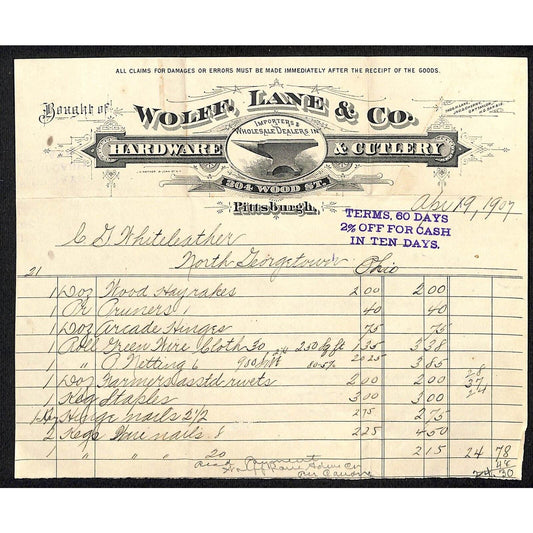 ALL CLAIMS FOR DAMAGES OR ERRORS MUST BE MADE IMMEDIATELY AFTER THE RECEIPT OF THE GOODS.
Bought of
WOLFF, LANE & CO.
IMPORTERS &
WHOLESALE DEALERS IN
HARDWARE & CUTLERY
304 WOOD ST.
Pittsburgh,
Apr 19, 1907
TERMS, 60 DAYS
2% OFF FOR CASH
IN TEN DAYS.
C D Whiteleather
North Georgetown Ohio
21
1 Doz Wood Hayrakes 2 00 2 00
1 Pr Pruners 1 40 40
1 Doz Arcade Hinges 75 75
1 Roll Green Wire Cloth 30 250 sq ft 1 35 3 38
1 " Netting 6 3 85
1 Doz Farmers asstd rivets 37
1 Keg Staples 3 00 3 00
1 Keg Hinge nails 2 1/2 2 75 2 75
2 Kegs Wire nails 8 2 25 4 50
1 " " " 20 2 15 24 78
48
24.30